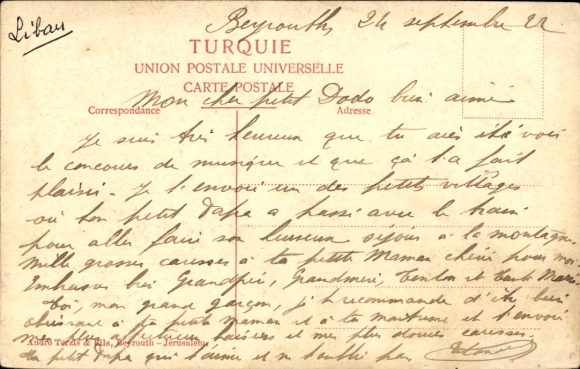 Liban
Beyrouth 24 septembre 22
TURQUIE
UNION POSTALE UNIVERSELLE
CARTE POSTALE
Correspondance Adresse
Mon cher petit Dodo bien aimé
Je suis très heureux que tu aies été voir
le concours de musique et que ça t'a fait
plaisir. Je t'envoie un des petits villages
où ton petit Papa a passé avec le train
pour aller faire son heureux séjour à la montagne.
Mille grosses caresses à ta petite Maman chérie pour moi.
Embrasses bien Grandpère, Grandmère, Tonton et Tante
Toi, mon grand garçon, je te recommande d'être bien
obéissant à ta petite maman et à ta marraine et t'envoie
affectueux baisers et mes plus douces caresses.
Ton petit Papa qui t'aime et n'oublie pas
André Terzis & Fils, Beyrouth - Jérusalem.